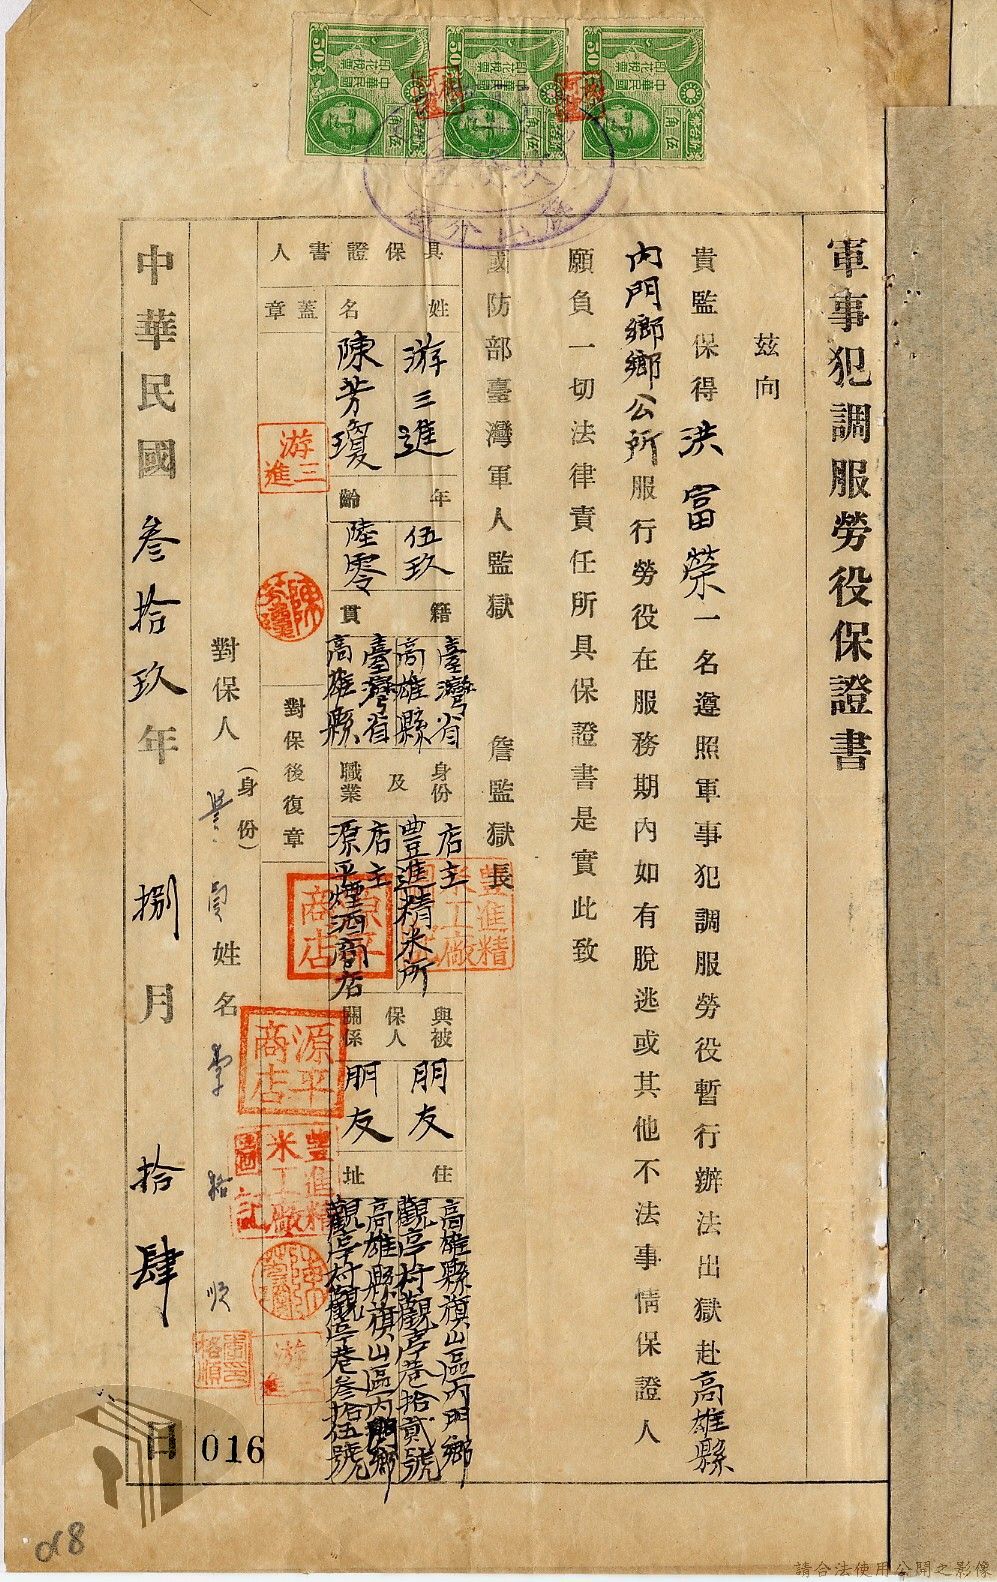 軍事犯調服勞役保證書
茲向
貴監保得洪富榮一名遵照軍事犯調服勞役暫行辦法出獄赴高雄縣
內門鄉鄉公所服行勞役在服務期內如有脫逃或其他不法事情保證人
願負一切法律責任所具保證書是實此致
國防部臺灣軍人監獄 詹監獄長
具保證書人
姓名
游三進
陳芳瓊
年齡
伍玖
陸零
籍貫
臺灣省
高雄縣
臺灣省
高雄縣
身份及職業
店主
豐進精米所
店主
源平煙酒商店
與被保人關係
朋友
朋友
住址
高雄縣旗山區內門鄉
觀亭村觀亭巷拾貳號
高雄縣旗山區內門鄉
觀亭村觀亭巷叁拾伍號
蓋章
游三進
陳芳瓊
對保後復章
源平商店
源平商店
豐進精米工廠
豐進精米工廠
游三進
對保人(身份)
姓名
中華民國叁拾玖年捌月拾肆日
中華民國
印花稅票
伍角
50
中華民國
印花稅票
伍角
50
中華民國
印花稅票
伍角
50
016
018
請合法使用公開之影像